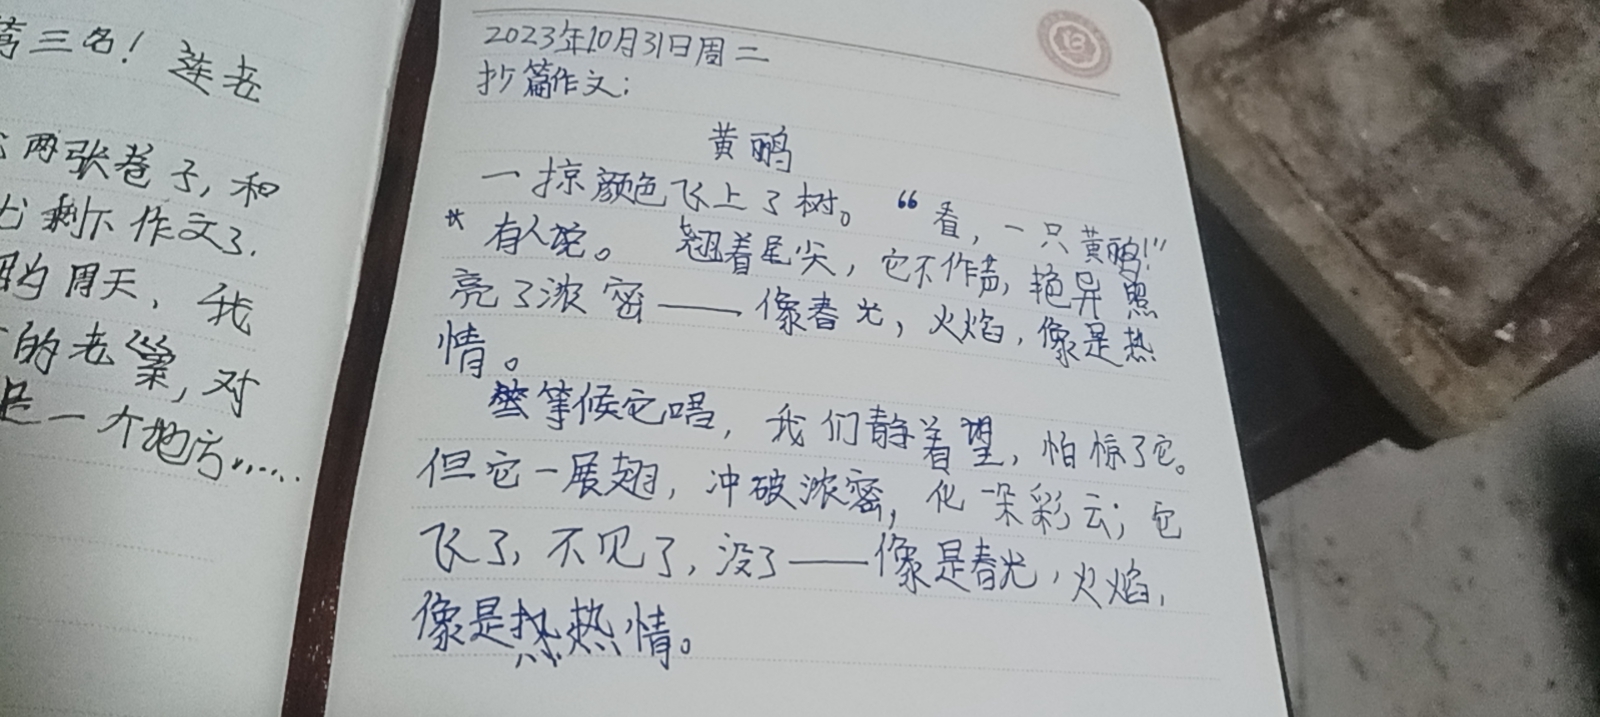 三名！ 连老
两张卷子，和
剩下作文了.
周天，我
的老巢，对
是一个地方......
2023年10月31日周二
抄篇作文：
黄鹂
一掠颜色飞上了树。 “看，一只黄鹂！”
有人说。 翘着尾尖，它不作声，艳异照
亮了浓密——像春光，火焰，像是热
情。
等候它唱，我们静着望，怕惊了它。
但它一展翅，冲破浓密，化一朵彩云；它
飞了，不见了，没了——像是春光，火焰，
像是热情。